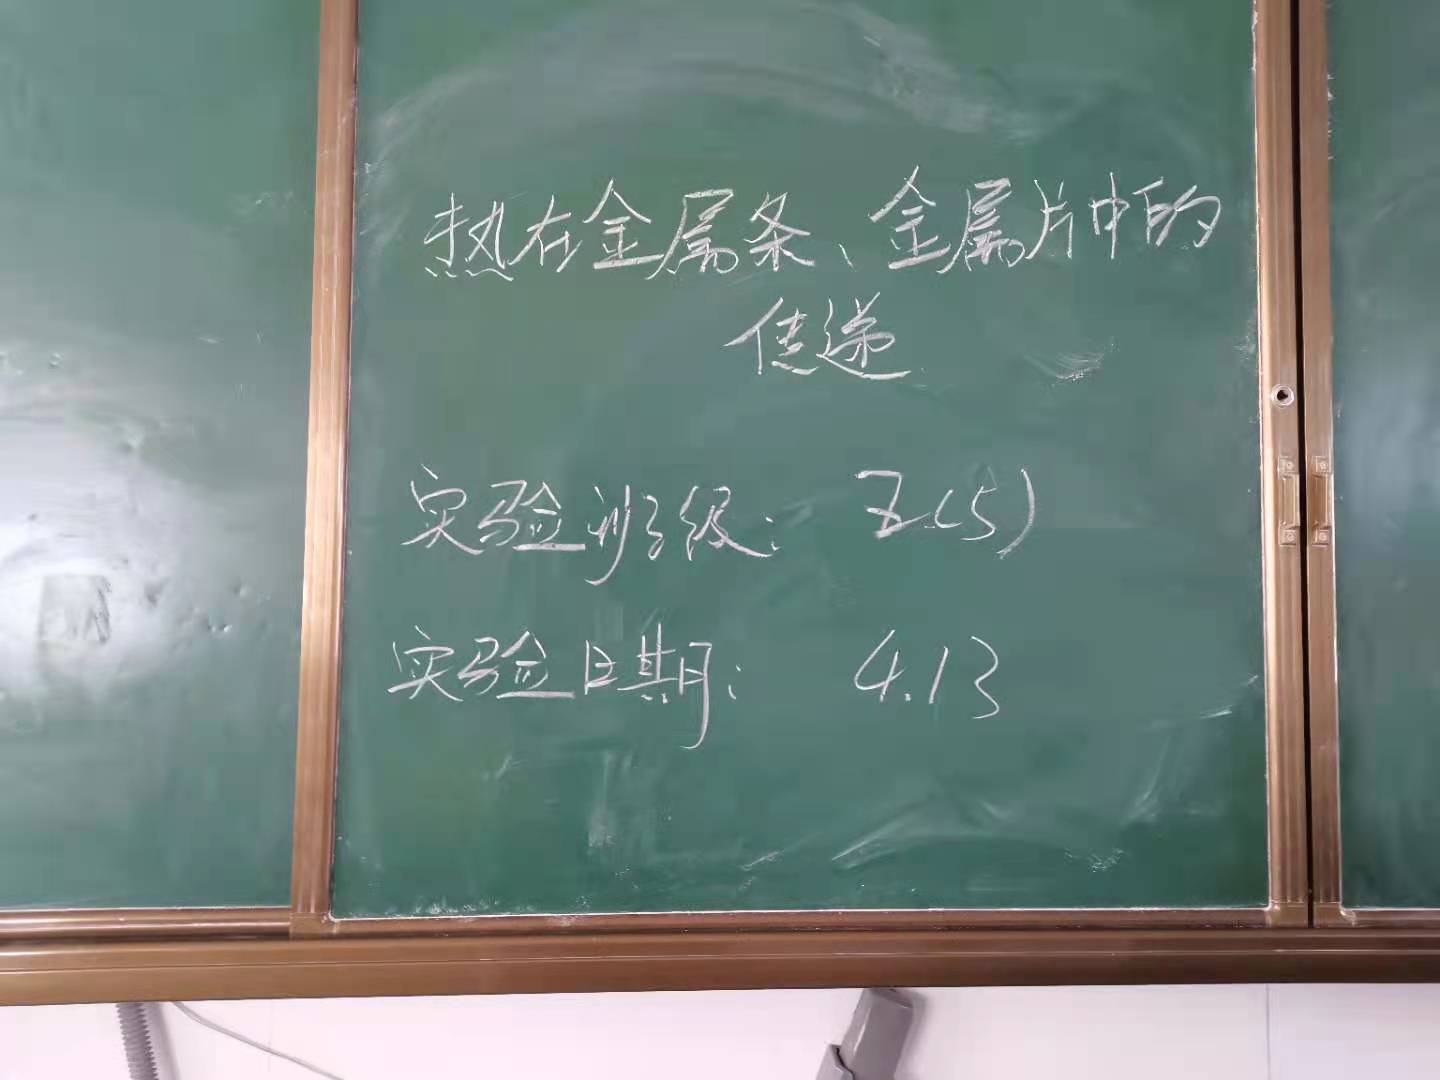 热在金属条、金属片中的
传递
实验班级： 五(5)
实验日期： 4.13